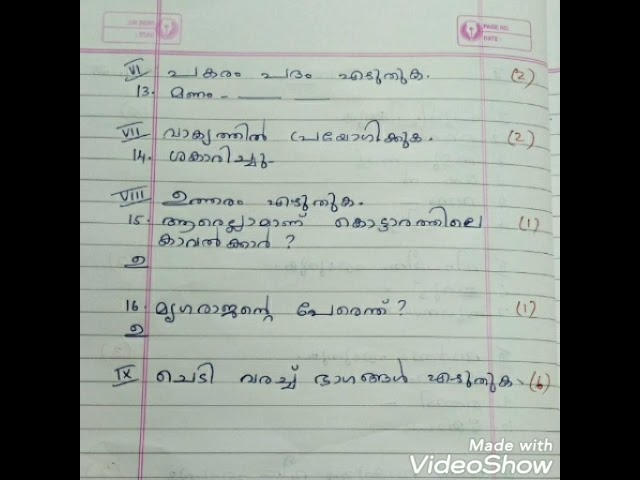 PAGE NO.
DATE :
VI പകരം പദം എഴുതുക. (2)
13. മണം - ____ ____
VII വാക്യത്തിൽ പ്രയോഗിക്കുക. (2)
14. ശകാരിച്ചു-
VIII ഉത്തരം എഴുതുക.
15. ആരെല്ലാമാണ് കൊട്ടാരത്തിലെ (1)
കാവൽക്കാർ ?
ഉ
16. മൃഗരാജന്റെ പേരെന്ത് ? (1)
ഉ
IX ചെടി വരച്ച് ഭാഗങ്ങൾ എഴുതുക. (6)
Made with
VideoShow